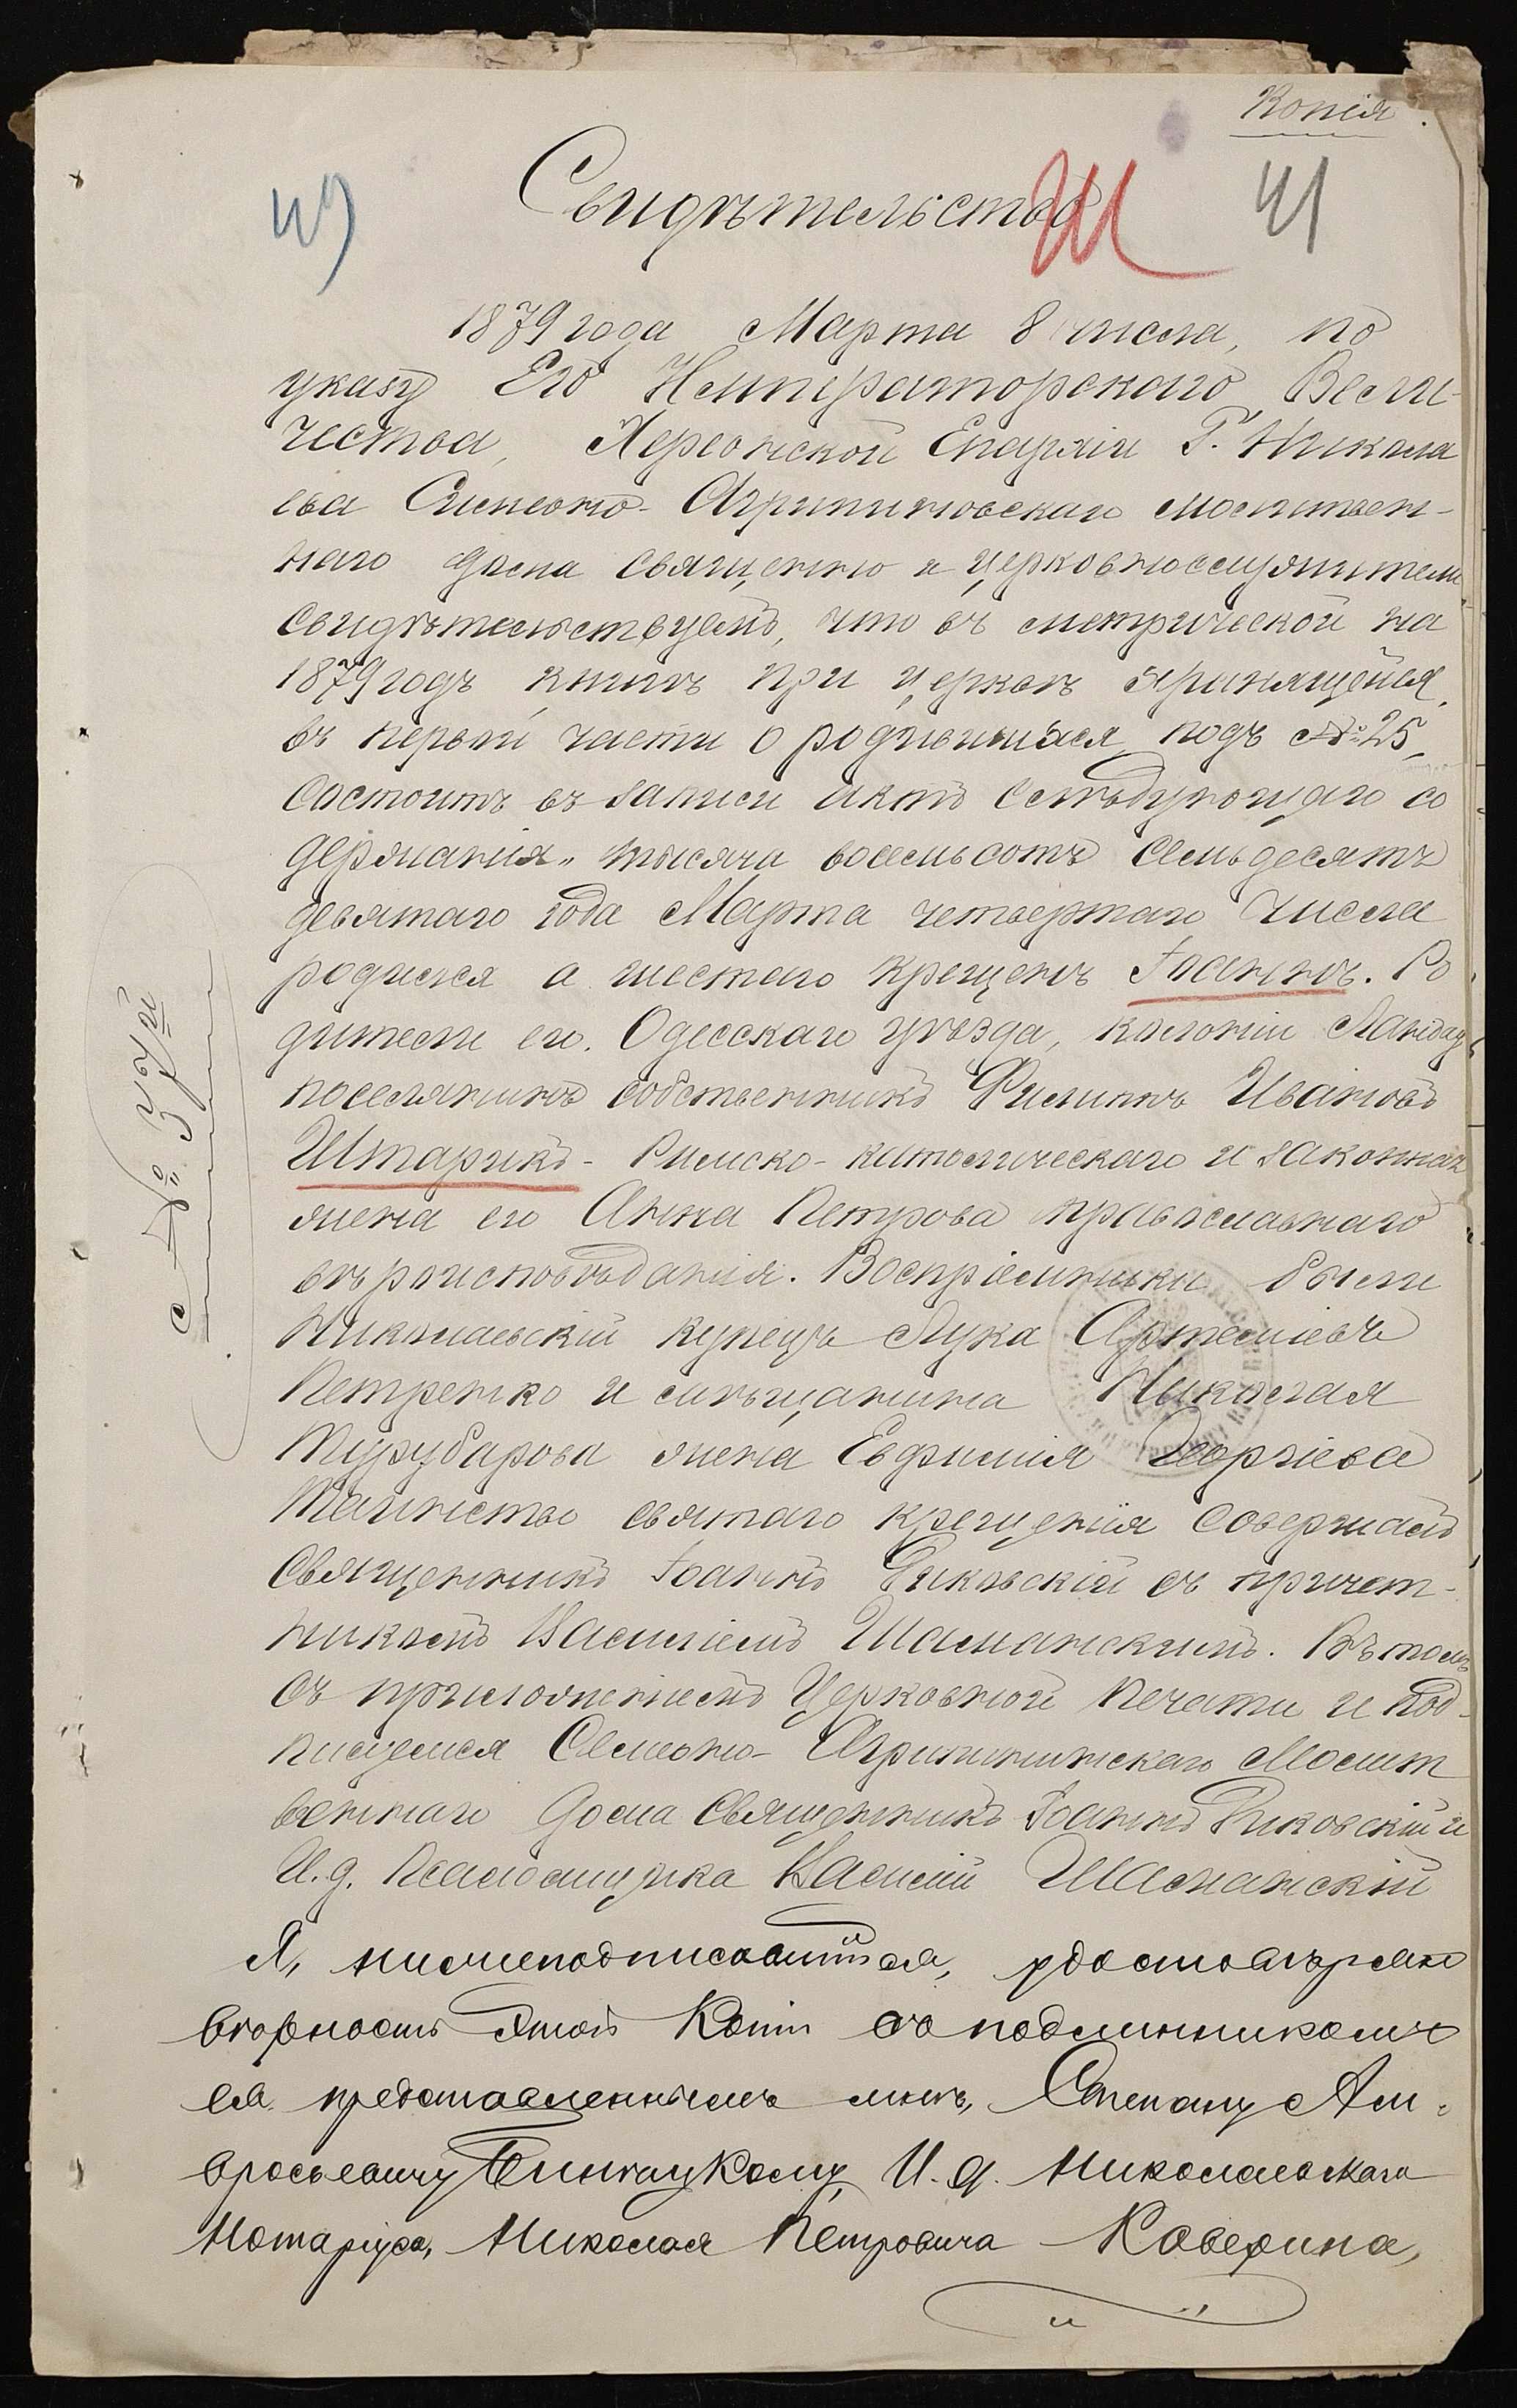 Копія.
Свидѣтельство
41
1879 года Марта 8 числа, по
указу Его Императорскаго Вели-
чества, Херсонской Епархіи Г. Никола
ева Симеоно-Агрипиновскаго молитвен-
наго дома священно и церковнослужители
свидѣтельствуемъ, что въ метрической на
1879 годъ книгѣ при церкви хранящейся,
въ первой части о родившихся подъ №25,
состоитъ въ записи актъ слѣдующаго со
держанія „тысяча восемьсотъ семьдесятъ
девятаго года Марта четвертаго числа
родился а шестаго крещенъ Іоаннъ. Ро
дители его. Одесскаго уѣзда, колоніи Ландау
поселянинъ собственникъ Филиппъ Ивановъ
Штарикъ - Римско-католическаго и законная
жена его Анна Петрова православнаго
вѣроисповѣданія. Воспріемники были
Николаевскій купецъ Лука Артеміевъ
Петренко и мѣщанина Николая
Турубарова жена Евфимія Георгіева
Таинство святаго крещенія совершалъ
Священникъ Іоаннъ Рыковскій съ причет-
никомъ Василіемъ Шаманскимъ. Въ томъ
съ приложеніемъ Церковной печати и под-
писуемся Симеоно-Агрипининскаго Молит
веннаго дома Священникъ Іоаннъ Рыковскій и
И.д. Псаломщика Василій Шаманскій
Я, нижеподписавшійся, удостовѣряю
вѣрность этой копіи съ подлинникомъ
ея представленнымъ мнѣ, Степану Ам-
вросьевичу И.д. Николаевскаго
Нотаріуса, Николая Петровича Каверина,